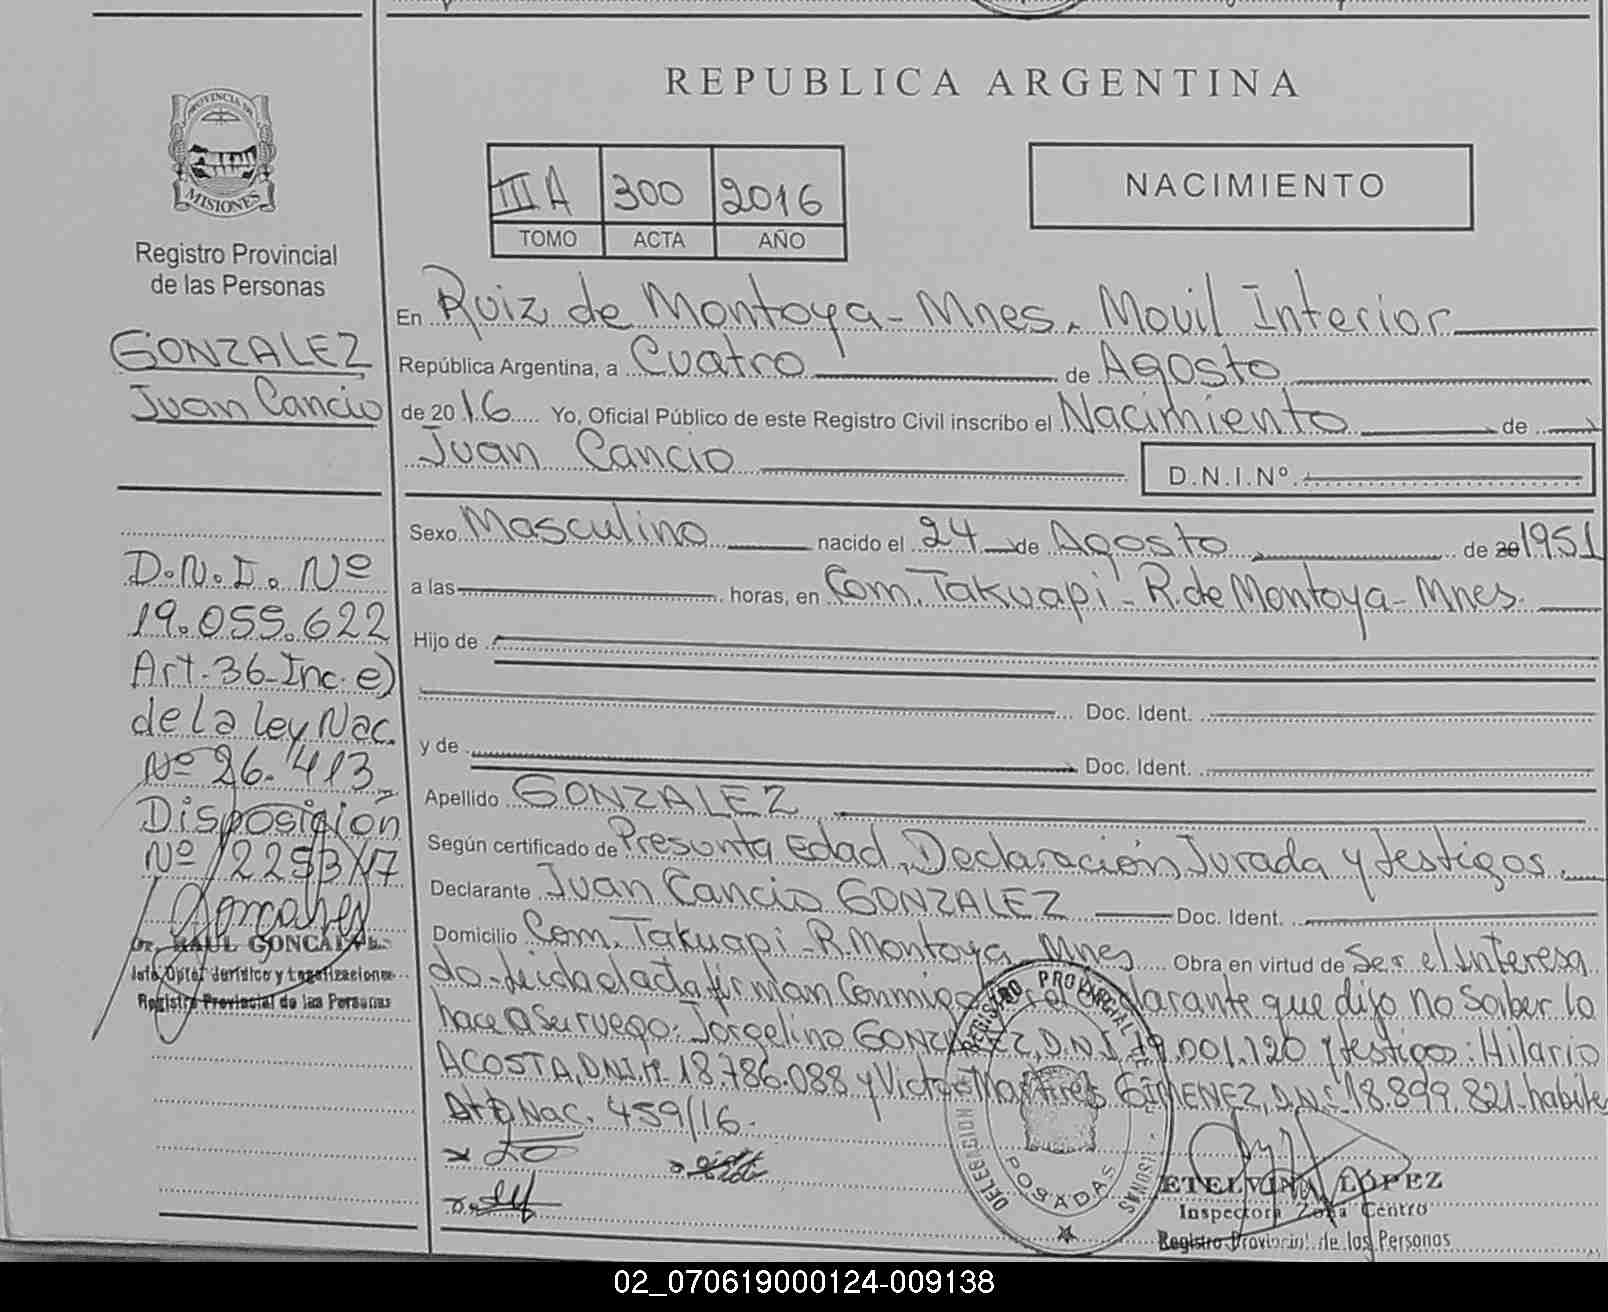 REPUBLICA ARGENTINA
PROVINCIA DE
MISIONES
Registro Provincial
de las Personas
GONZALEZ
Juan Cancio
D.N.I. Nº
19.055.622
Art. 36 Inc. e)
de la ley Nac.
Nº 26.413
Disposición
Nº 2253/17
Dr. RAUL GONCALVES
Registro Provincial de las Personas
III A 300 2016
TOMO ACTA AÑO
NACIMIENTO
En Ruiz de Montoya - Mnes. Movil Interior
República Argentina, a Cuatro de Agosto
de 2016 Yo, Oficial Público de este Registro Civil inscribo el Nacimiento de
Juan Cancio
D.N.I.Nº.
Sexo Masculino nacido el 24 de Agosto de 20 1951
a las horas, en Com. Takuapi - R. de Montoya - Mnes.
Hijo de
Doc. Ident.
y de Doc. Ident.
Apellido GONZALEZ
Según certificado de Presunta Edad, Declaración Jurada y testigos.
Declarante Juan Cancio GONZALEZ Doc. Ident.
Domicilio Com. Takuapi - R. Montoya Mnes Obra en virtud de Ser el Interesa
do. Leida el acta firman Conmigo el declarante que dijo no Saber lo
hace a Su ruego: Jorgelino GONZALEZ, D.N.I. 19.001.120 y testigos: Hilario
ACOSTA, D.N.I. Nº 18.786.088 y Victor GIMENEZ, D.N.I. 18.899.821. habite
Dto Nac. 459/16.
REGISTRO PROVINCIAL DE
DELEGACION
POSADAS
MISIONES
ETELVINA LOPEZ
Inspectora Zona Centro
Registro Provincial de las Personas
02_070619000124-009138